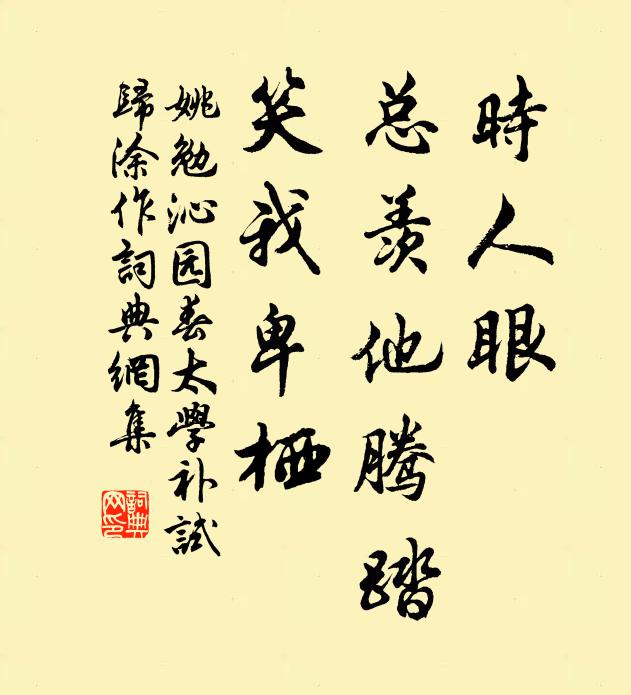 時人眼
总羨他騰踏
笑我卑栖
姚勉沁园春太學补試
歸涂作詞典網集
詞典
网印